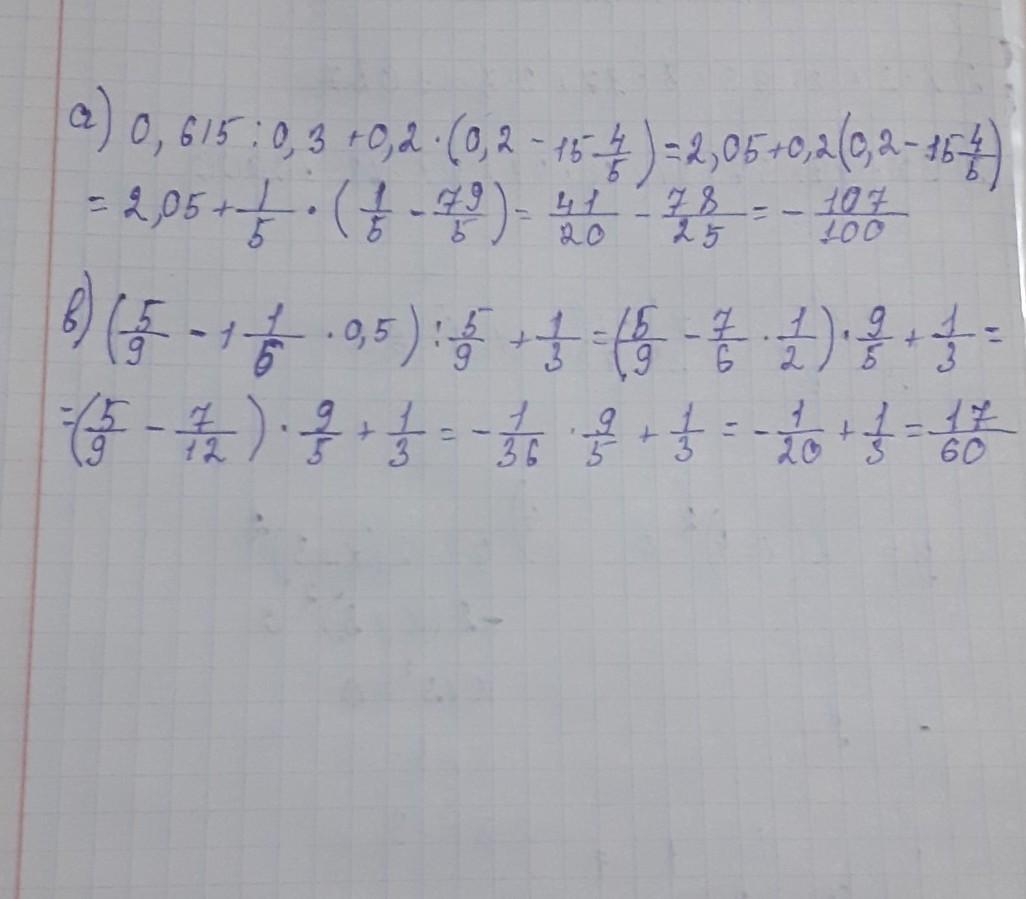 а) 0,615:0,3+0,2·(0,2-15 4/5)=2,05+0,2(0,2-15 4/5)
=2,05+1/5·(1/5-79/5)=41/20-78/25=-107/100
в) (5/9-1 1/6·0,5):5/9+1/3=(5/9-7/6·1/2)·9/5+1/3=
=(5/9-7/12)·9/5+1/3=-1/36·9/5+1/3=-1/20+1/3=17/60